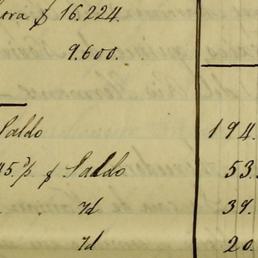 tera $ 16.224
9.600.
Saldo 194.
45 % $ Saldo 53.
7d 39.
7d 20